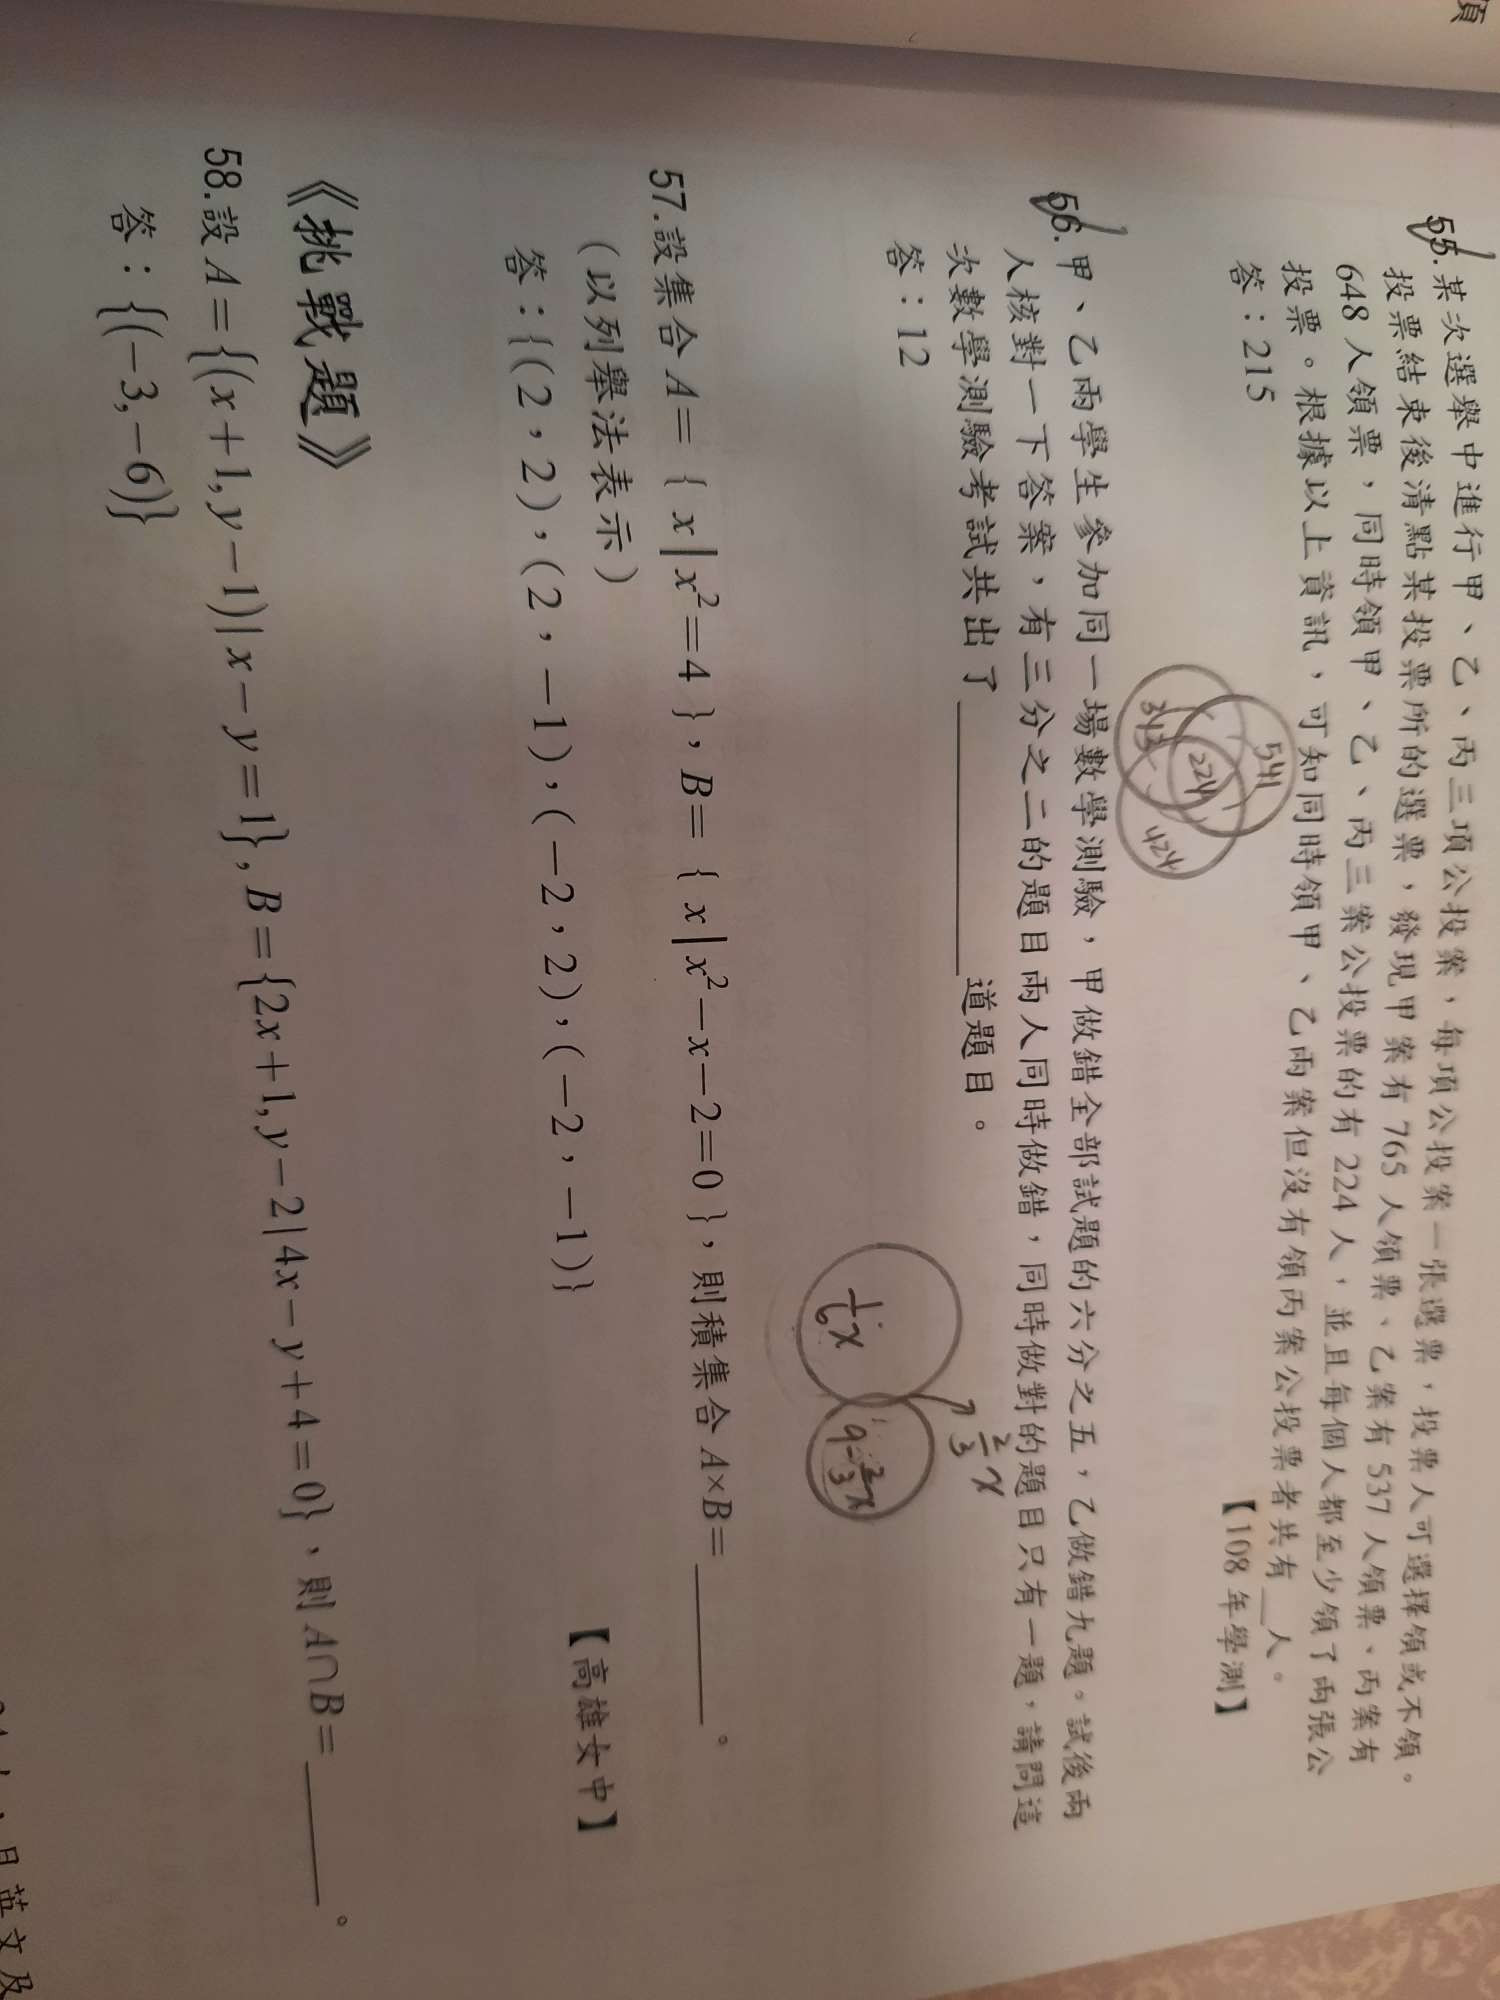 55.某次選舉中進行甲、乙、丙三項公投案，每項公投案一張選票，投票人可選擇領或不領。
投票結束後清點某投票所的選票，發現甲案有 765 人領票、乙案有 537 人領票、丙案有
648 人領票，同時領甲、乙、丙三案公投票的有 224 人，並且每個人都至少領了兩張公
投票。根據以上資訊，可知同時領甲、乙兩案但沒有領丙案公投票者共有__人。
答：215
【108 年學測】
541
313
224
424
56.甲、乙兩學生參加同一場數學測驗，甲做錯全部試題的六分之五，乙做錯九題。試後兩
人核對一下答案，有三分之二的題目兩人同時做錯，同時做對的題目只有一題，請問這
次數學測驗考試共出了________道題目。
答：12
2/3 x
1/6 x
9-2/3 x
57.設集合 A＝{ x | x²＝4 }，B＝{ x | x²－x－2＝0 }，則積集合 A×B＝________。
（以列舉法表示）
【高雄女中】
答：{(2，2)，(2，－1)，(－2，2)，(－2，－1)}
《挑戰題》
58.設 A＝{(x＋1, y－1)| x－y＝1}, B＝{2x＋1, y－2| 4x－y＋4＝0}、則 A∩B＝________。
答：{(－3,－6)}